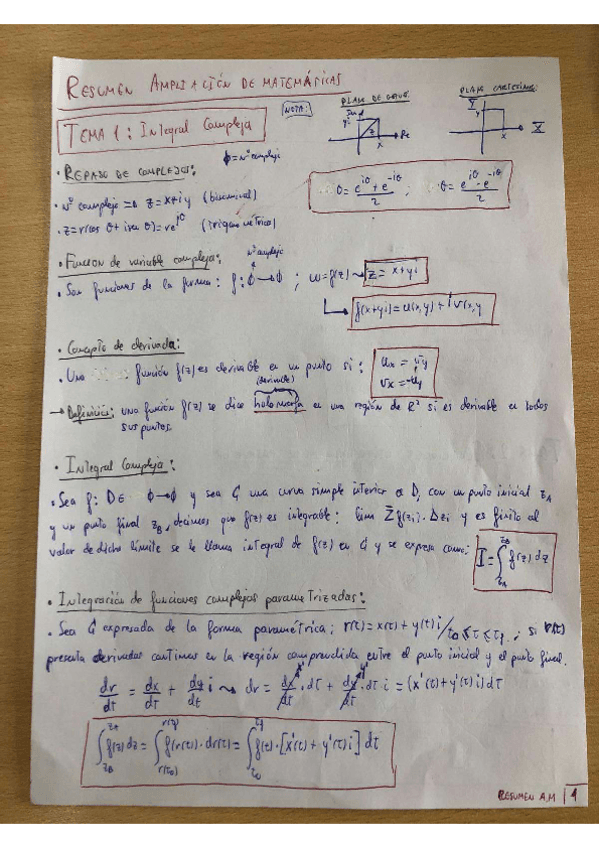 RESUMEN AMPLIACIÓN DE MATEMÁTICAS
NOTA:
PLANO DE GAUSS:
PLANO CARTESIANO:
Re
x
y
x
X
TEMA 1: Integral Compleja
ϕ = nº complejo
· REPASO DE COMPLEJOS:
· nº complejo => z = x+iy (binominal)
θ = e^{iθ} + e^{-iθ} / 2 ; θ = e^{iθ} - e^{-iθ} / 2
(trigonométrica)
nº complejo
· Función de variable compleja:
· Son funciones de la forma: f: ϕ → ϕ ; w = f(z) → z = x+yi
f(x+yi) = u(x,y) + i v(x,y
· Concepto de derivada:
· Una función f(z) es derivable en un punto si: ux = vy
vx = -uy
(derivable)
→ Definición: una función f(z) se dice holomorfa en una región de R² si es derivable en todos
sus puntos.
· Integral Compleja:
· Sea f: D ∈ ϕ → ϕ y sea G una curva simple interior a D, con un punto inicial z_A
y un punto final z_B, decimos que f(z) es integrable: lim Σ f(zi) . Δzi y es finito al
valor de dicho límite se le llama integral de f(z) en G y se expresa como: I = ∫_{z_A}^{z_B} f(z) dz
· Integración de funciones complejas parametrizadas:
· Sea G expresada de la forma paramétrica: r(t) = x(t) + y(t) i / t0 ≤ t ≤ t1 ; si r(t)
presenta derivadas continuas en la región comprendida entre el punto inicial y el punto final.
dr/dt = dx/dt + dy/dt i → dr = dx/dt . dt + dy/dt . dt i = (x'(t) + y'(t) i) dt
f(z) dz = ∫ f(r(t)) . dr(t) = ∫ f(t) . [x'(t) + y'(t) i] dt
RESUMEN A.M | 1